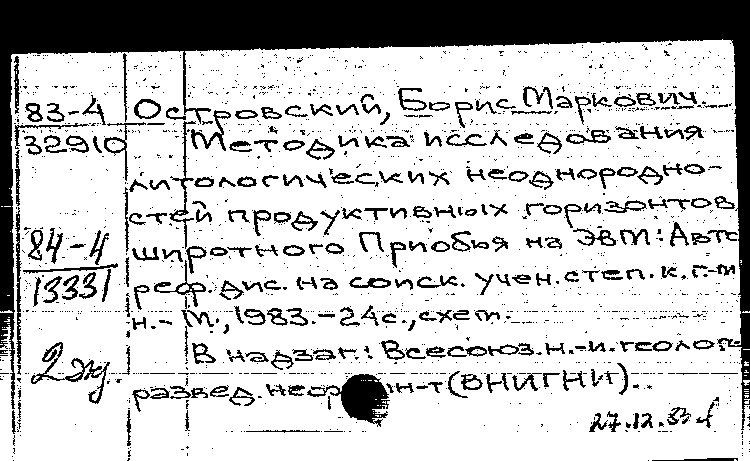 83-4 Островский, Борис Маркович.
32910 Методика исследования
литологических неоднородно-
стей продуктивных горизонтов
84-4 широтного Приобья на ЭВМ: Авто
13331 реф. дис. на соиск. учен. степ. к. г.-м
н. - М., 1983. - 24 с., схем.
В надзаг.: Всесоюз. н.-и. геолог.
2 эк. развед. ин-т (ВНИГНИ).
27.12.83